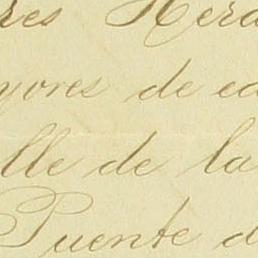 res Hera
yores de ed
lle de la
Puente d